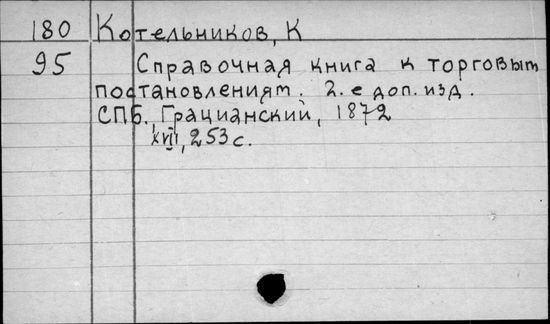 180 Котельников, К
95 Справочная книга к торговым
постановлениям. 2.е доп. изд.
СПБ. Грацианский, 1872
XVII, 253 с.